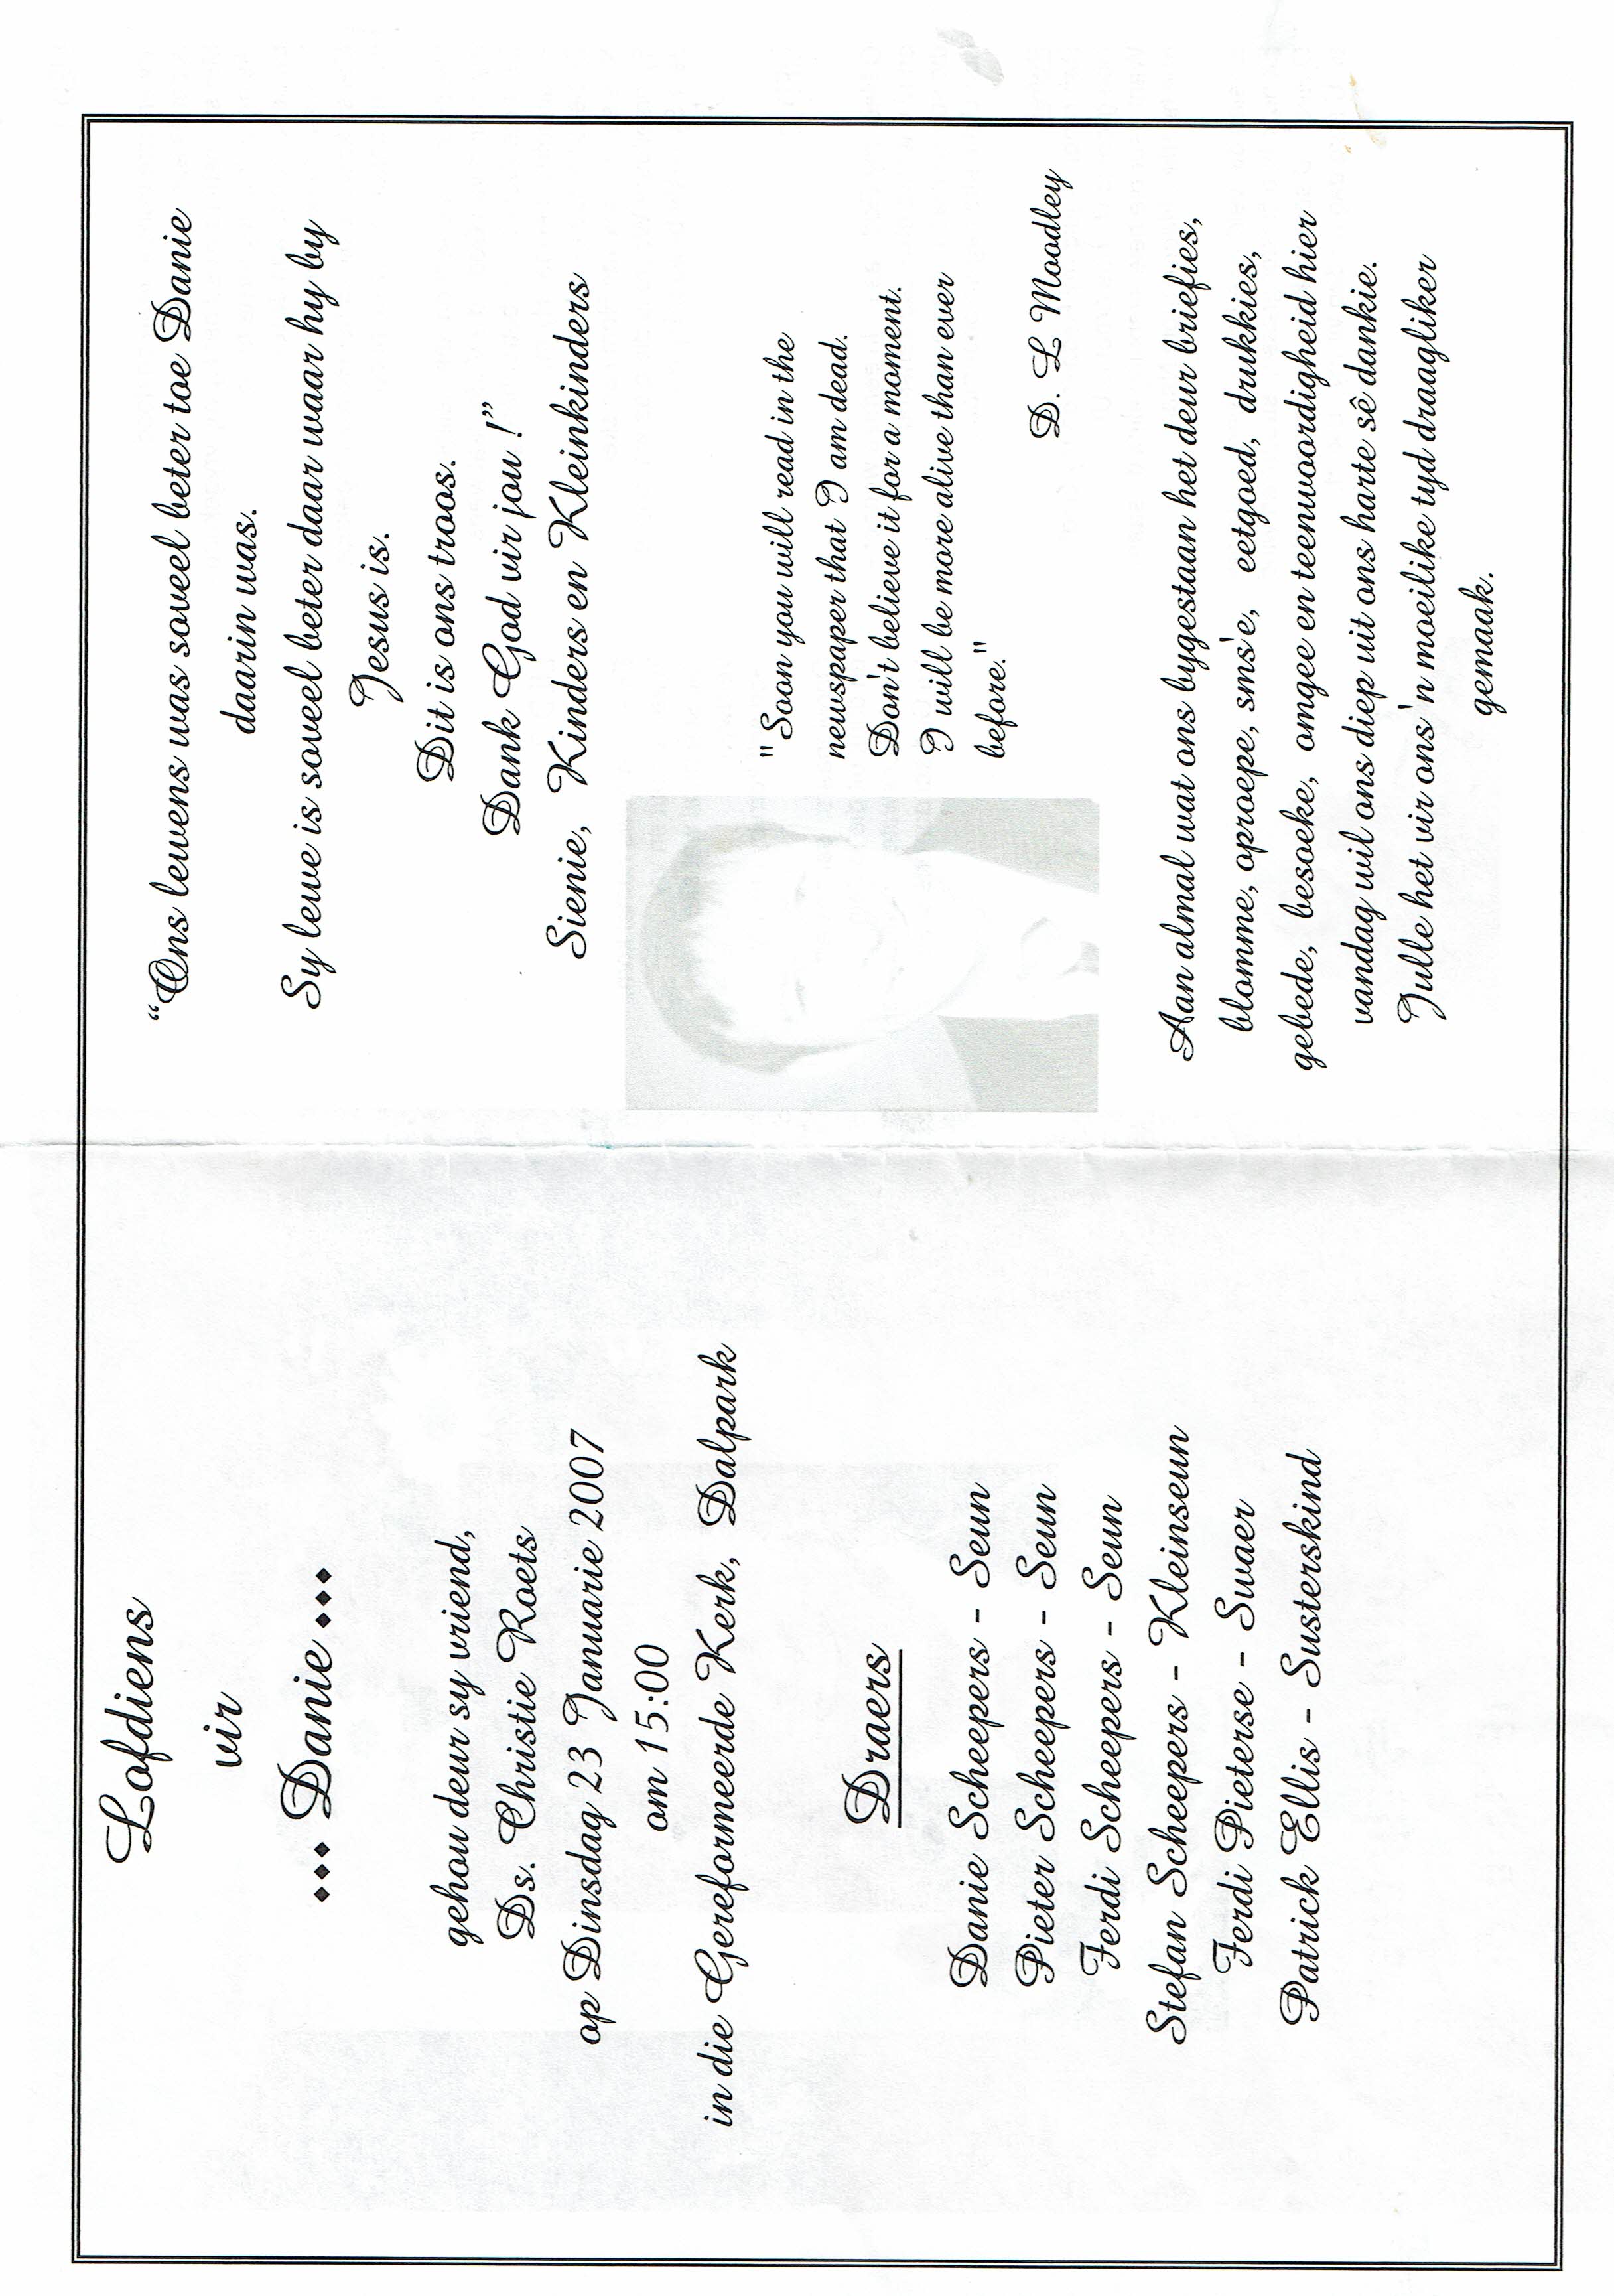 Lofdiens
vir
... Danie ...
gehou deur sy vriend,
Ds. Christie Roets
op Dinsdag 23 Januarie 2007
om 15:00
in die Gereformeerde Kerk, Dalpark
Draers
Danie Scheepers - Seun
Pieter Scheepers - Seun
Ferdi Scheepers - Seun
Stefan Scheepers - Kleinseun
Ferdi Pieterse - Swaer
Patrick Ellis - Susterskind
“Ons lewens was soveel beter toe Danie
daarin was.
Sy lewe is soveel beter daar waar hy by
Jesus is.
Dit is ons troos.
Dank God vir jou !”
Sienie, Kinders en Kleinkinders
"Soon you will read in the
newspaper that I am dead.
Don't believe it for a moment.
I will be more alive than ever
before."
D. L Moodley
Aan almal wat ons bygestaan het deur briefies,
blomme, oproepe, sms'e, eetgoed, drukkies,
gebede, besoeke, omgee en teenwoordigheid hier
vandag wil ons diep uit ons harte sê dankie.
Julle het vir ons 'n moeilike tyd draagliker
gemaak.